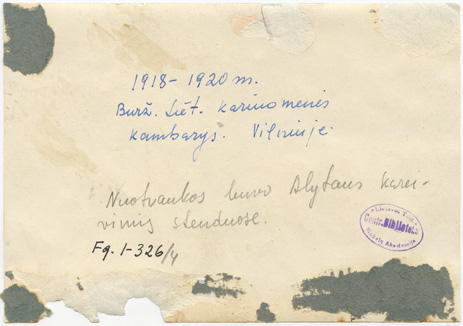 1918-1920 m.
Burž. Liet. kariuomenės
kambarys. Vilniuje.
Nuotraukos buvo Alytaus karei-
vinių stenduose.
Fg. 1-326/4
Centr. Biblioteka
Mokslų Akademija